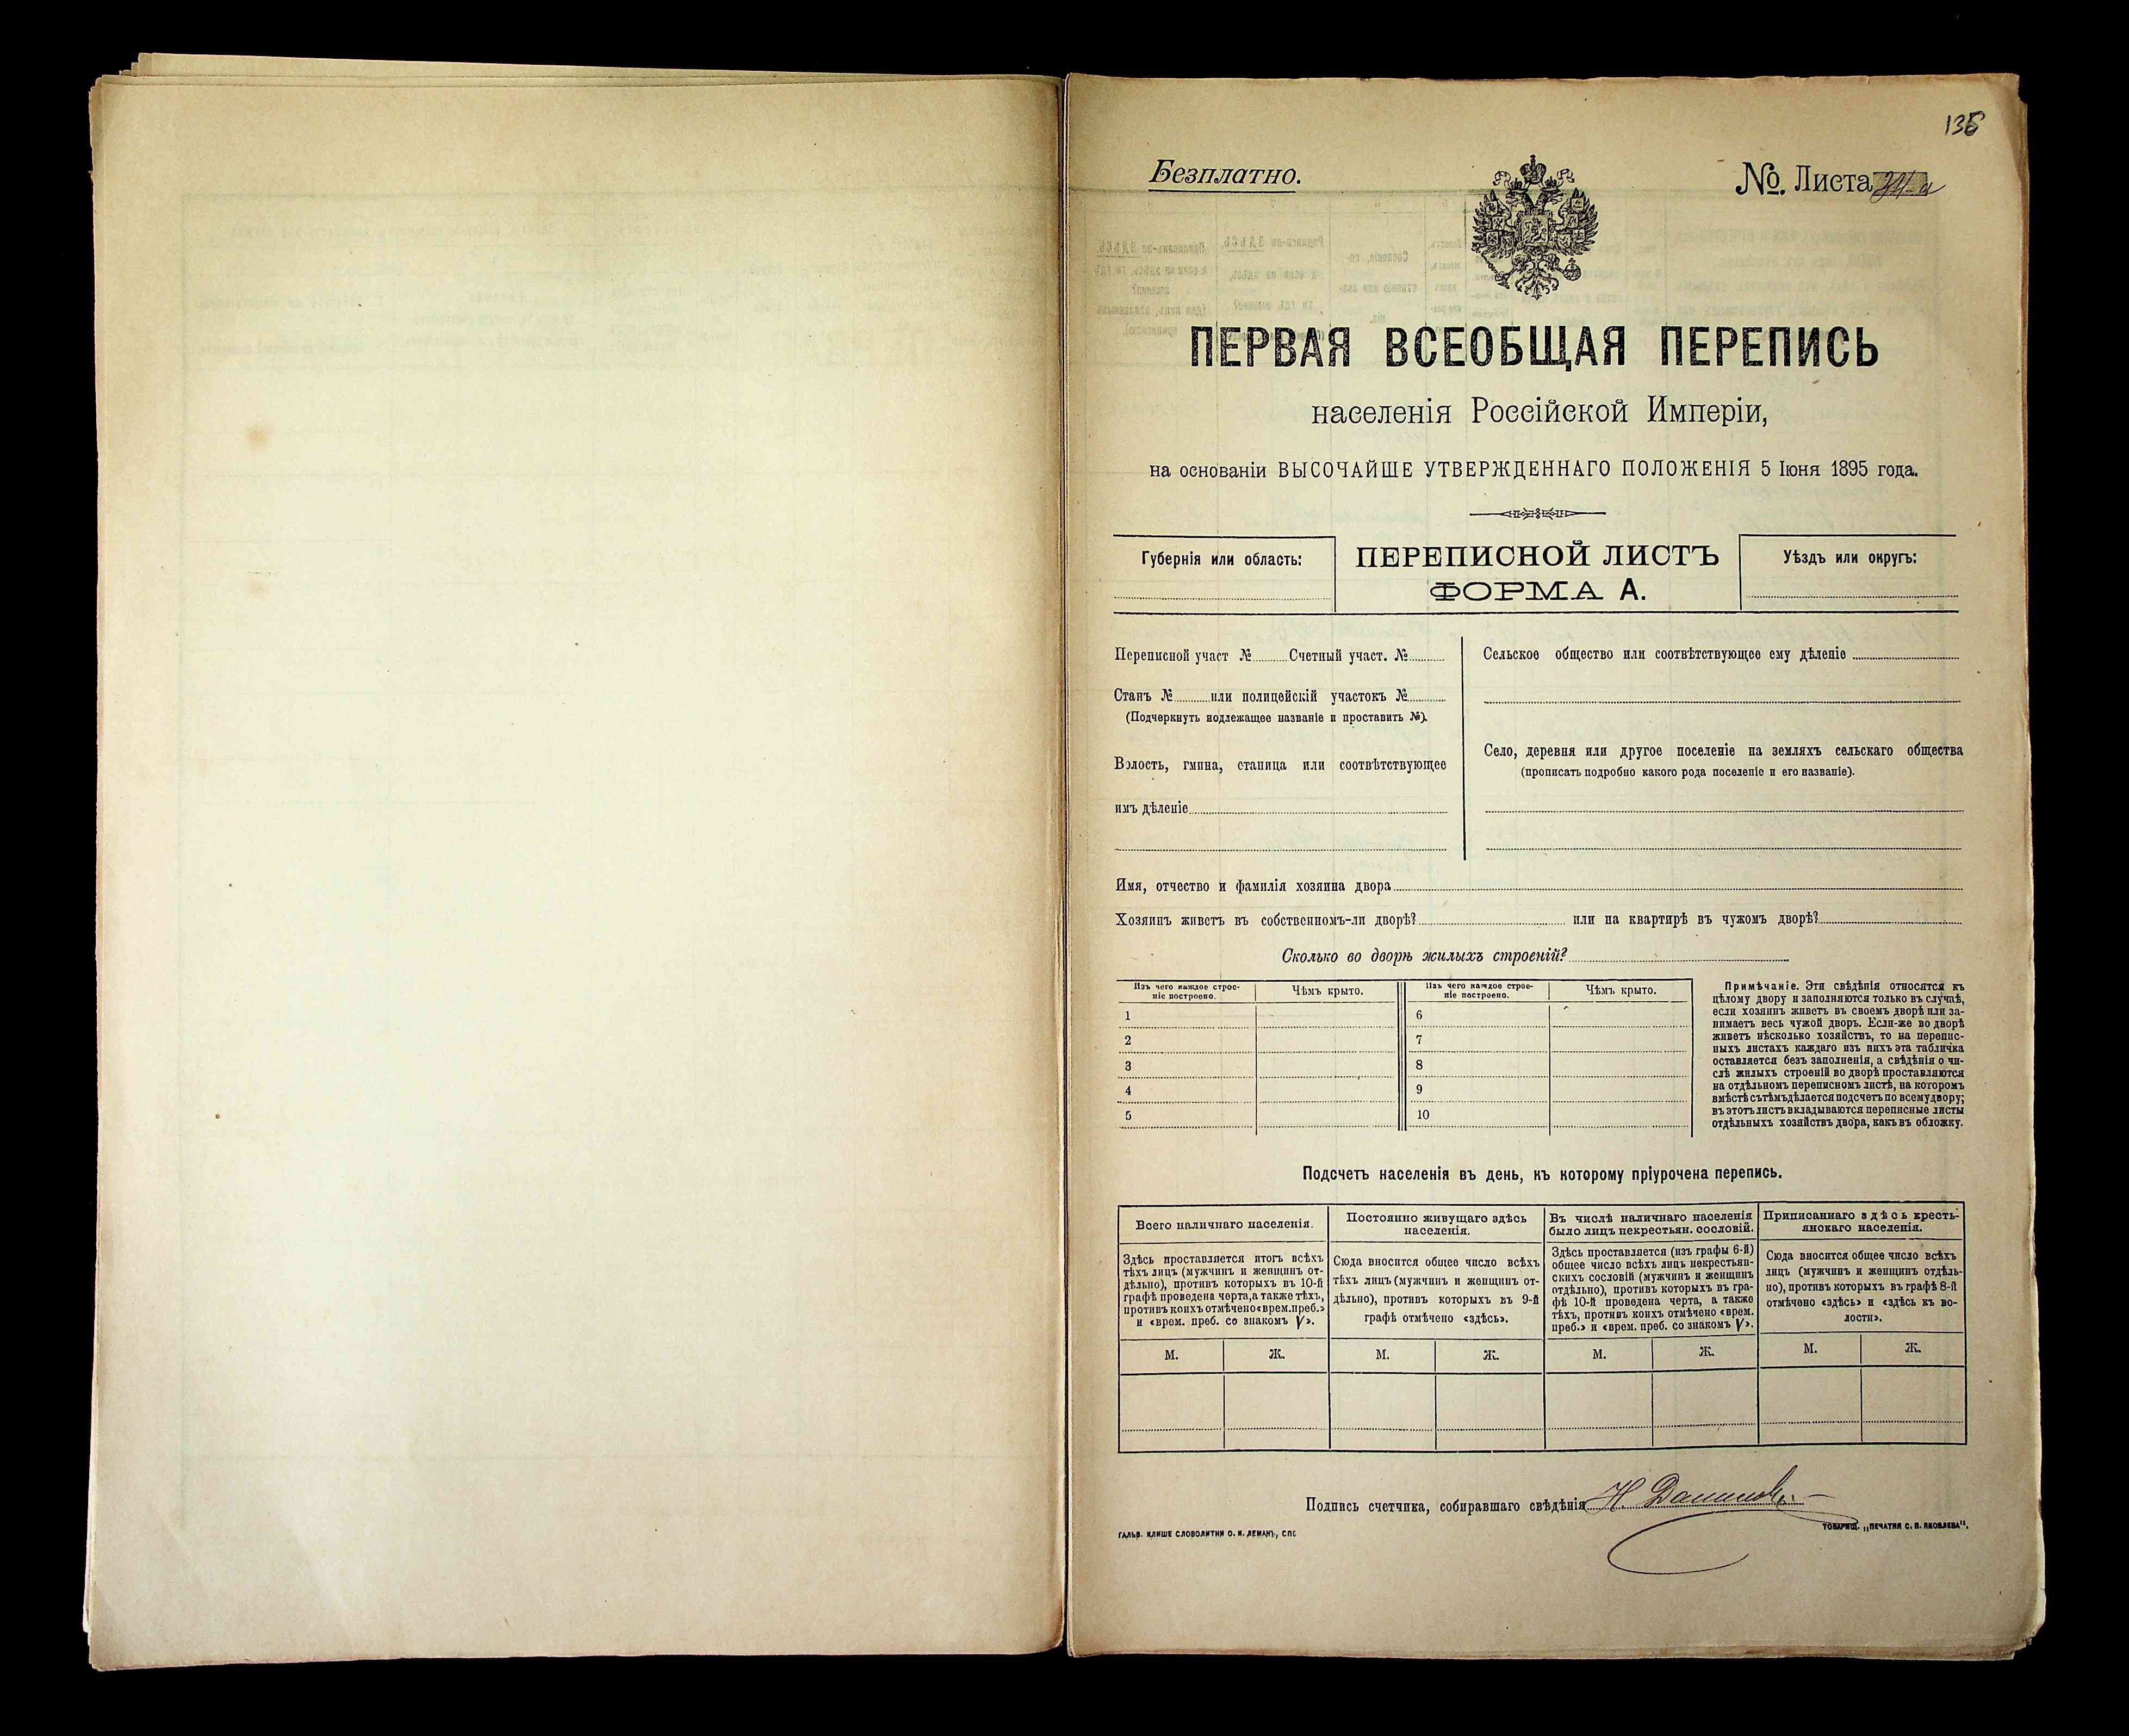 136
Безплатно.
№. Листа 24-а
ПЕРВАЯ ВСЕОБЩАЯ ПЕРЕПИСЬ
населенія Россійской Имперіи,
на основаніи ВЫСОЧАЙШЕ УТВЕРЖДЕННАГО ПОЛОЖЕНІЯ 5 Іюня 1895 года.
Губернія или область:
ПЕРЕПИСНОЙ ЛИСТЪ
ФОРМА А.
Уѣздъ или округъ:
Переписной участ № Счетный участ. №
Станъ № или полицейскій участокъ №
(Подчеркнуть подлежащее названіе и проставить №).
Волость, гмина, станица или соотвѣтствующее
имъ дѣленіе
Сельское общество или соотвѣтствующее ему дѣленіе
Село, деревня или другое поселеніе на земляхъ сельскаго общества
(прописать подробно какого рода поселеніе и его названіе).
Имя, отчество и фамилія хозяина двора
Хозяинъ живетъ въ собственномъ-ли дворѣ? или на квартирѣ въ чужомъ дворѣ?
Сколько во дворѣ жилыхъ строеній?
Изъ чего каждое строе-
ніе построено.
Чѣмъ крыто.
Изъ чего каждое строе-
ніе построено.
Чѣмъ крыто.
1 6
2 7
3 8
4 9
5 10
Примѣчаніе. Эти свѣдѣнія относятся къ
цѣлому двору и заполняются только въ случаѣ,
если хозяинъ живетъ въ своемъ дворѣ или за-
нимаетъ весь чужой дворъ. Если-же во дворѣ
живетъ нѣсколько хозяйствъ, то на перепис-
ныхъ листахъ каждаго изъ нихъ эта табличка
оставляется безъ заполненія, а свѣдѣнія о чи-
слѣ жилыхъ строеній во дворѣ проставляются
на отдѣльномъ переписномъ листѣ, на которомъ
вмѣстѣ съ тѣмъ дѣлается подсчетъ по всему двору;
въ этотъ листъ вкладываются переписные листы
отдѣльныхъ хозяйствъ двора, какъ въ обложку.
Подсчетъ населенія въ день, къ которому пріурочена перепись.
Всего наличнаго населенія.
Здѣсь проставляется итогъ всѣхъ
тѣхъ лицъ (мужчинъ и женщинъ от-
дѣльно), противъ которыхъ въ 10-й
графѣ проведена черта, а также тѣхъ,
противъ коихъ отмѣчено «врем. преб.»
и «врем. преб. со знакомъ V».
Постоянно живущаго здѣсь
населенія.
Сюда вносится общее число всѣхъ
тѣхъ лицъ (мужчинъ и женщинъ от-
дѣльно), противъ которыхъ въ 9-й
графѣ отмѣчено «здѣсь».
Въ числѣ наличнаго населенія
было лицъ некрестьян. сословій.
Здѣсь проставляется (изъ графы 6-й)
общее число всѣхъ лицъ некрестьян-
скихъ сословій (мужчинъ и женщинъ
отдѣльно), противъ которыхъ въ гра-
фѣ 10-й проведена черта, а также
тѣхъ, противъ коихъ отмѣчено «врем.
преб.» и «врем. преб. со знакомъ V».
Приписаннаго здѣсь кресть-
янскаго населенія.
Сюда вносится общее число всѣхъ
лицъ (мужчинъ и женщинъ отдѣль-
но), противъ которыхъ въ графѣ 8-й
отмѣчено «здѣсь» и «здѣсь къ во-
лости».
М. Ж. М. Ж. М. Ж. М. Ж.
Подпись счетчика, собиравшаго свѣдѣнія Н.
ГАЛЬВ. КЛИШЕ СЛОВОЛИТНИ О. И. ЛЕМАНЪ, СПБ
ТОВАРИЩ. „ПЕЧАТНЯ С. П. ЯКОВЛЕВА“.